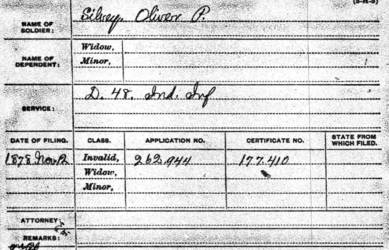 (3-M-3)
NAME OF SOLDIER: Silvey, Oliver P.
NAME OF DEPENDENT: Widow,
Minor,
SERVICE: D. 48. Ind. Inf
DATE OF FILING. CLASS. APPLICATION NO. CERTIFICATE NO. STATE FROM WHICH FILED.
1878 Nov. 12 Invalid, 262.944 177.410
Widow,
Minor,
ATTORNEY:
REMARKS: